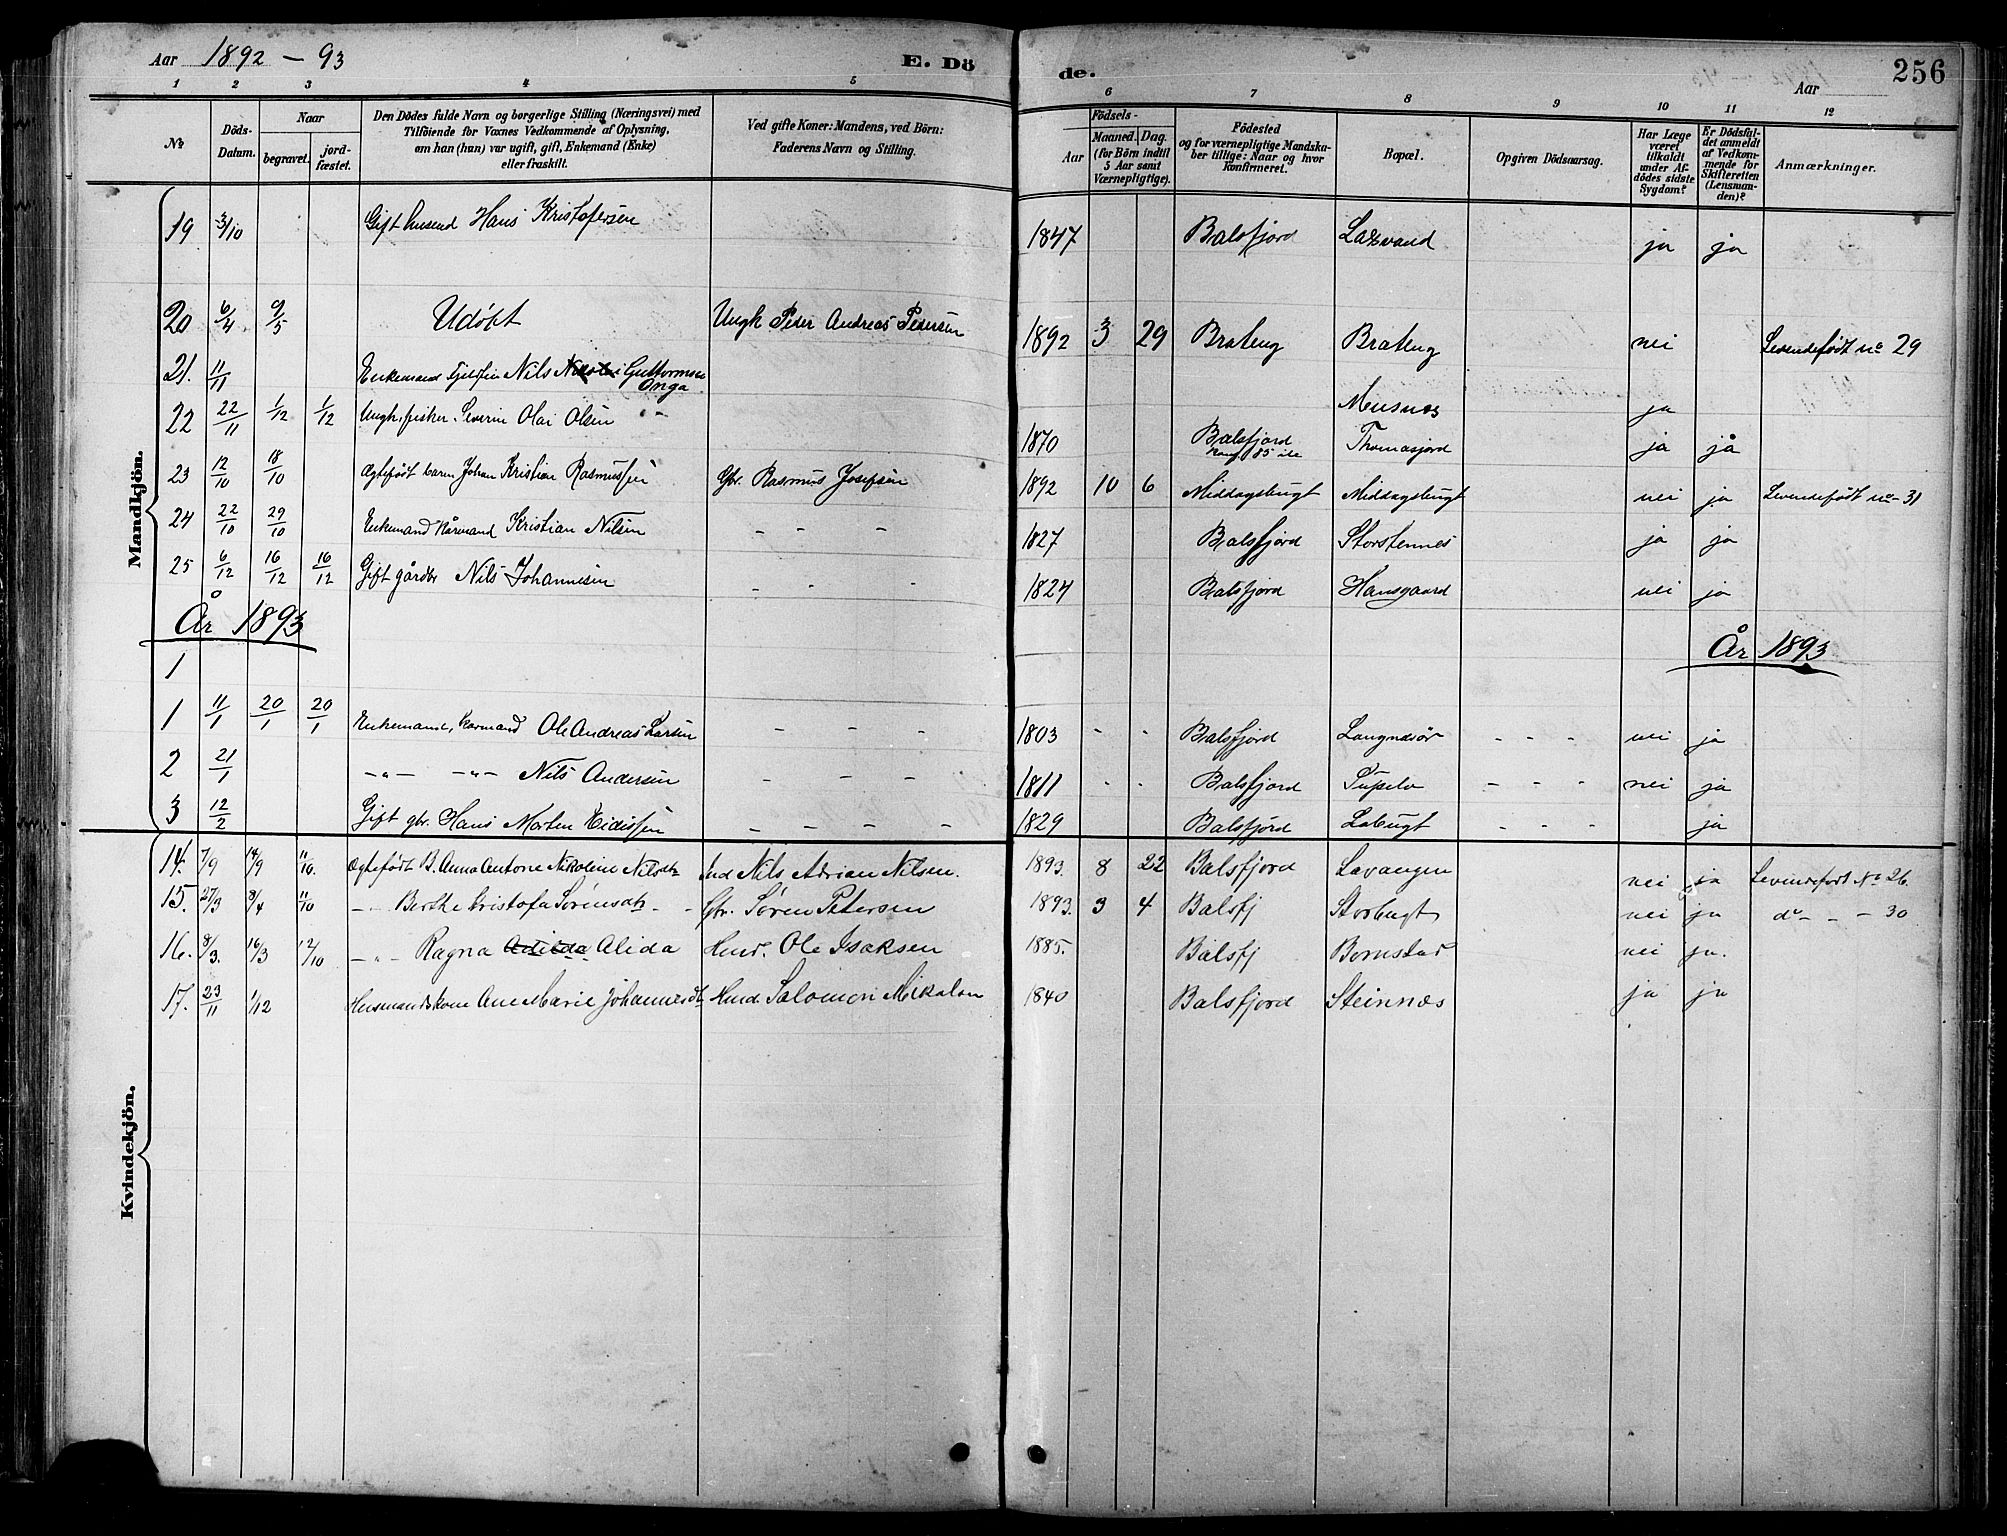 Aar 1892 - 93 E. Dö de. Aar 256
1 2 3 4 5 6 7 8 9 10 11 12
No
Döds-Datum.
Naar
begravet.
jord-fæstet.
Den Dödes fulde Navn og borgerlige Stilling (Næringsvei) med
Tilföiende for Voxnes Vedkommende af Oplysning,
om han (hun) var ugift, gift, Enkemand (Enke)
eller fraskilt.
Ved gifte Koner: Mandens, ved Börn:
Faderens Navn og Stilling.
Födsels-
Aar
Maaned. Dag.
(for Börn indtil
5 Aar samt
Værnepligtige).
Födested
og for værnepligtige Mandska-
ber tillige: Naar og hvor
konfirmeret.
Bopæl.
Opgiven Dödsaarsag.
Har Læge
været
tilkaldt
under Af-
dödes sidste
Sygdom?
Er Dödsful-
det anmeldt
af Vedkom-
mende for
Skifteretten
(Lensman-
den)?
Anmærkninger.
Mandkjön.
19 3/10 Gift Hans Kristofersen 1847 Balsfjord ja ja
20 6/4 9/5 Udöbt Ungk Peder Andreas Pedersen 1892 3 29 Brateng Brateng nei Levendefödt no 29
21. 11/11 Enkemand Nils Guttormsen
Onga
Mersnes ja
22 22/11 1/12 1/12 Ungk, fisker. Severin Olai Olsen 1870 Balsfjord Thomasjord ja ja
23 12/10 18/10 Ægtefödt barn Johan Kristian Rasmussen Gbr. Rasmus Josefsen 1892 10 6 Middagsbugt Middagsbugt nei ja Levendefödt no - 31
24 22/10 29/10 Enkemand Kårmand Kristian Nilsen - - - 1827 Balsfjord Storstennes ja ja
25 6/12 16/12 16/12 Gift gårdbr Nils Johannesen - - - 1824 Balsfjord Hansgaard nei ja
År 1893 År 1893
1
1 11/1 20/1 20/1 Enkemand, Kormand Ole Andreas Larsen - - - 1803 - - Balsfjord - - - nei ja
2 21/1 -"- -"- Nils Andersen - - - 1811 - - Balsfjord - - - nei ja
3 12/2 Gift gbr. Hans Morten Eidissen - - - - 1829 Balsfjord Labugt - - - ja
Kvindekjön.
14. 7/9 14/9 11/10. Ægtefödt B. Anna Antone Nikoline Nilsdtr Ind Nils Adrian Nilsen. 1893. 8 22 Balsfjord Lavangen nei ja Levendefödt No 26.
15. 27/3 8/4 11/10 -"- Berthe Kristofa Sörensdtr - Gbr. Sören Petersen 1893. 3 4 Balsfj Storbugt nei ja do - - - 30
16. 8/3. 16/3 12/10 -"- Ragna Alida Hmd. Ole Isaksen 1885. Balsfj Bomstad nei ja.
17. 23/11 1/12 Husmandskone Ane Marie Johannesdtr Hmd. Salomon Mikalsen 1840 Balsfjord Steinnæs ja ja